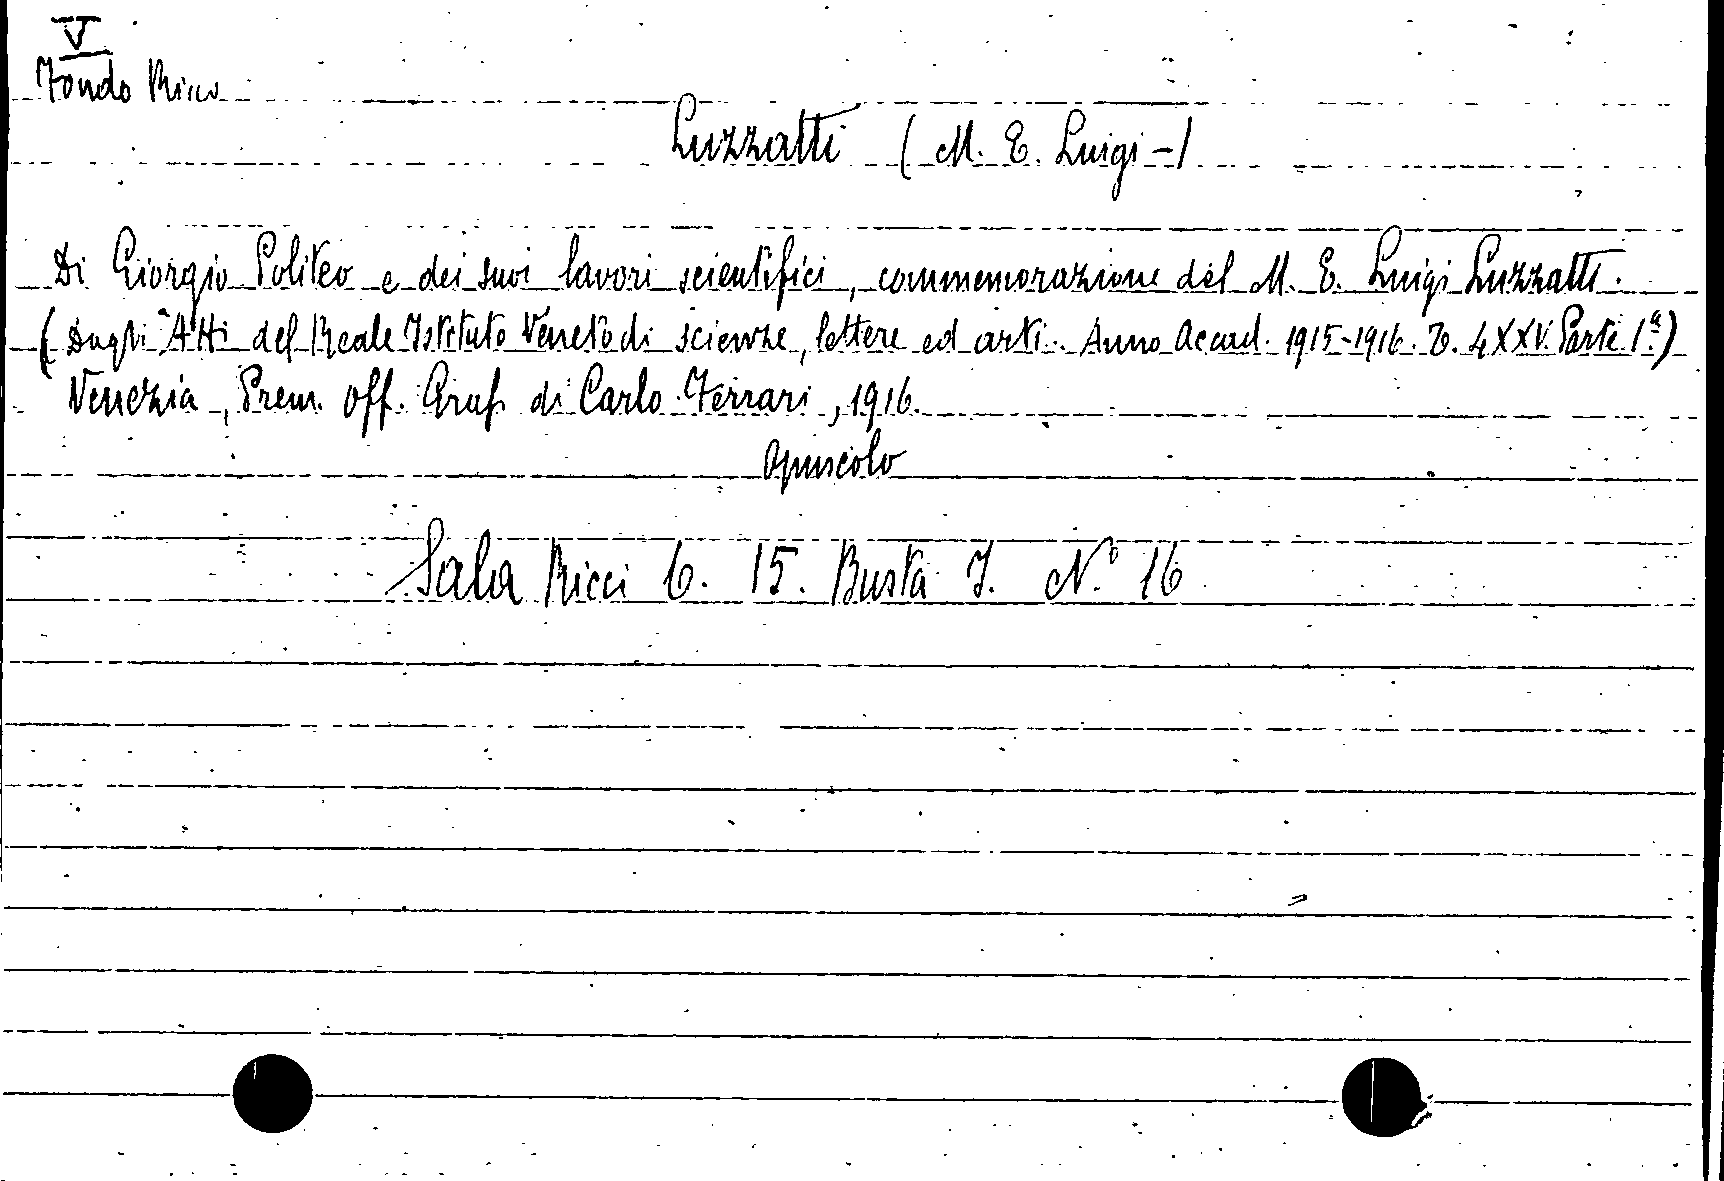 V
Fondo Ricci
Luzzatti (M. E. Luigi -)
Di Giorgio Politeo e dei suoi lavori scientifici, commemorazione del M. E. Luigi Luzzatti.
(Dagli "Atti del Reale Istituto Veneto di scienze, lettere ed arti. Anno Accad. 1915-1916. T. LXXV. Parte 1ª)
Venezia, Prem. Off. Graf. di Carlo Ferrari, 1916.
Opuscolo
Sala Ricci 6. 15. Busta I. N.° 16